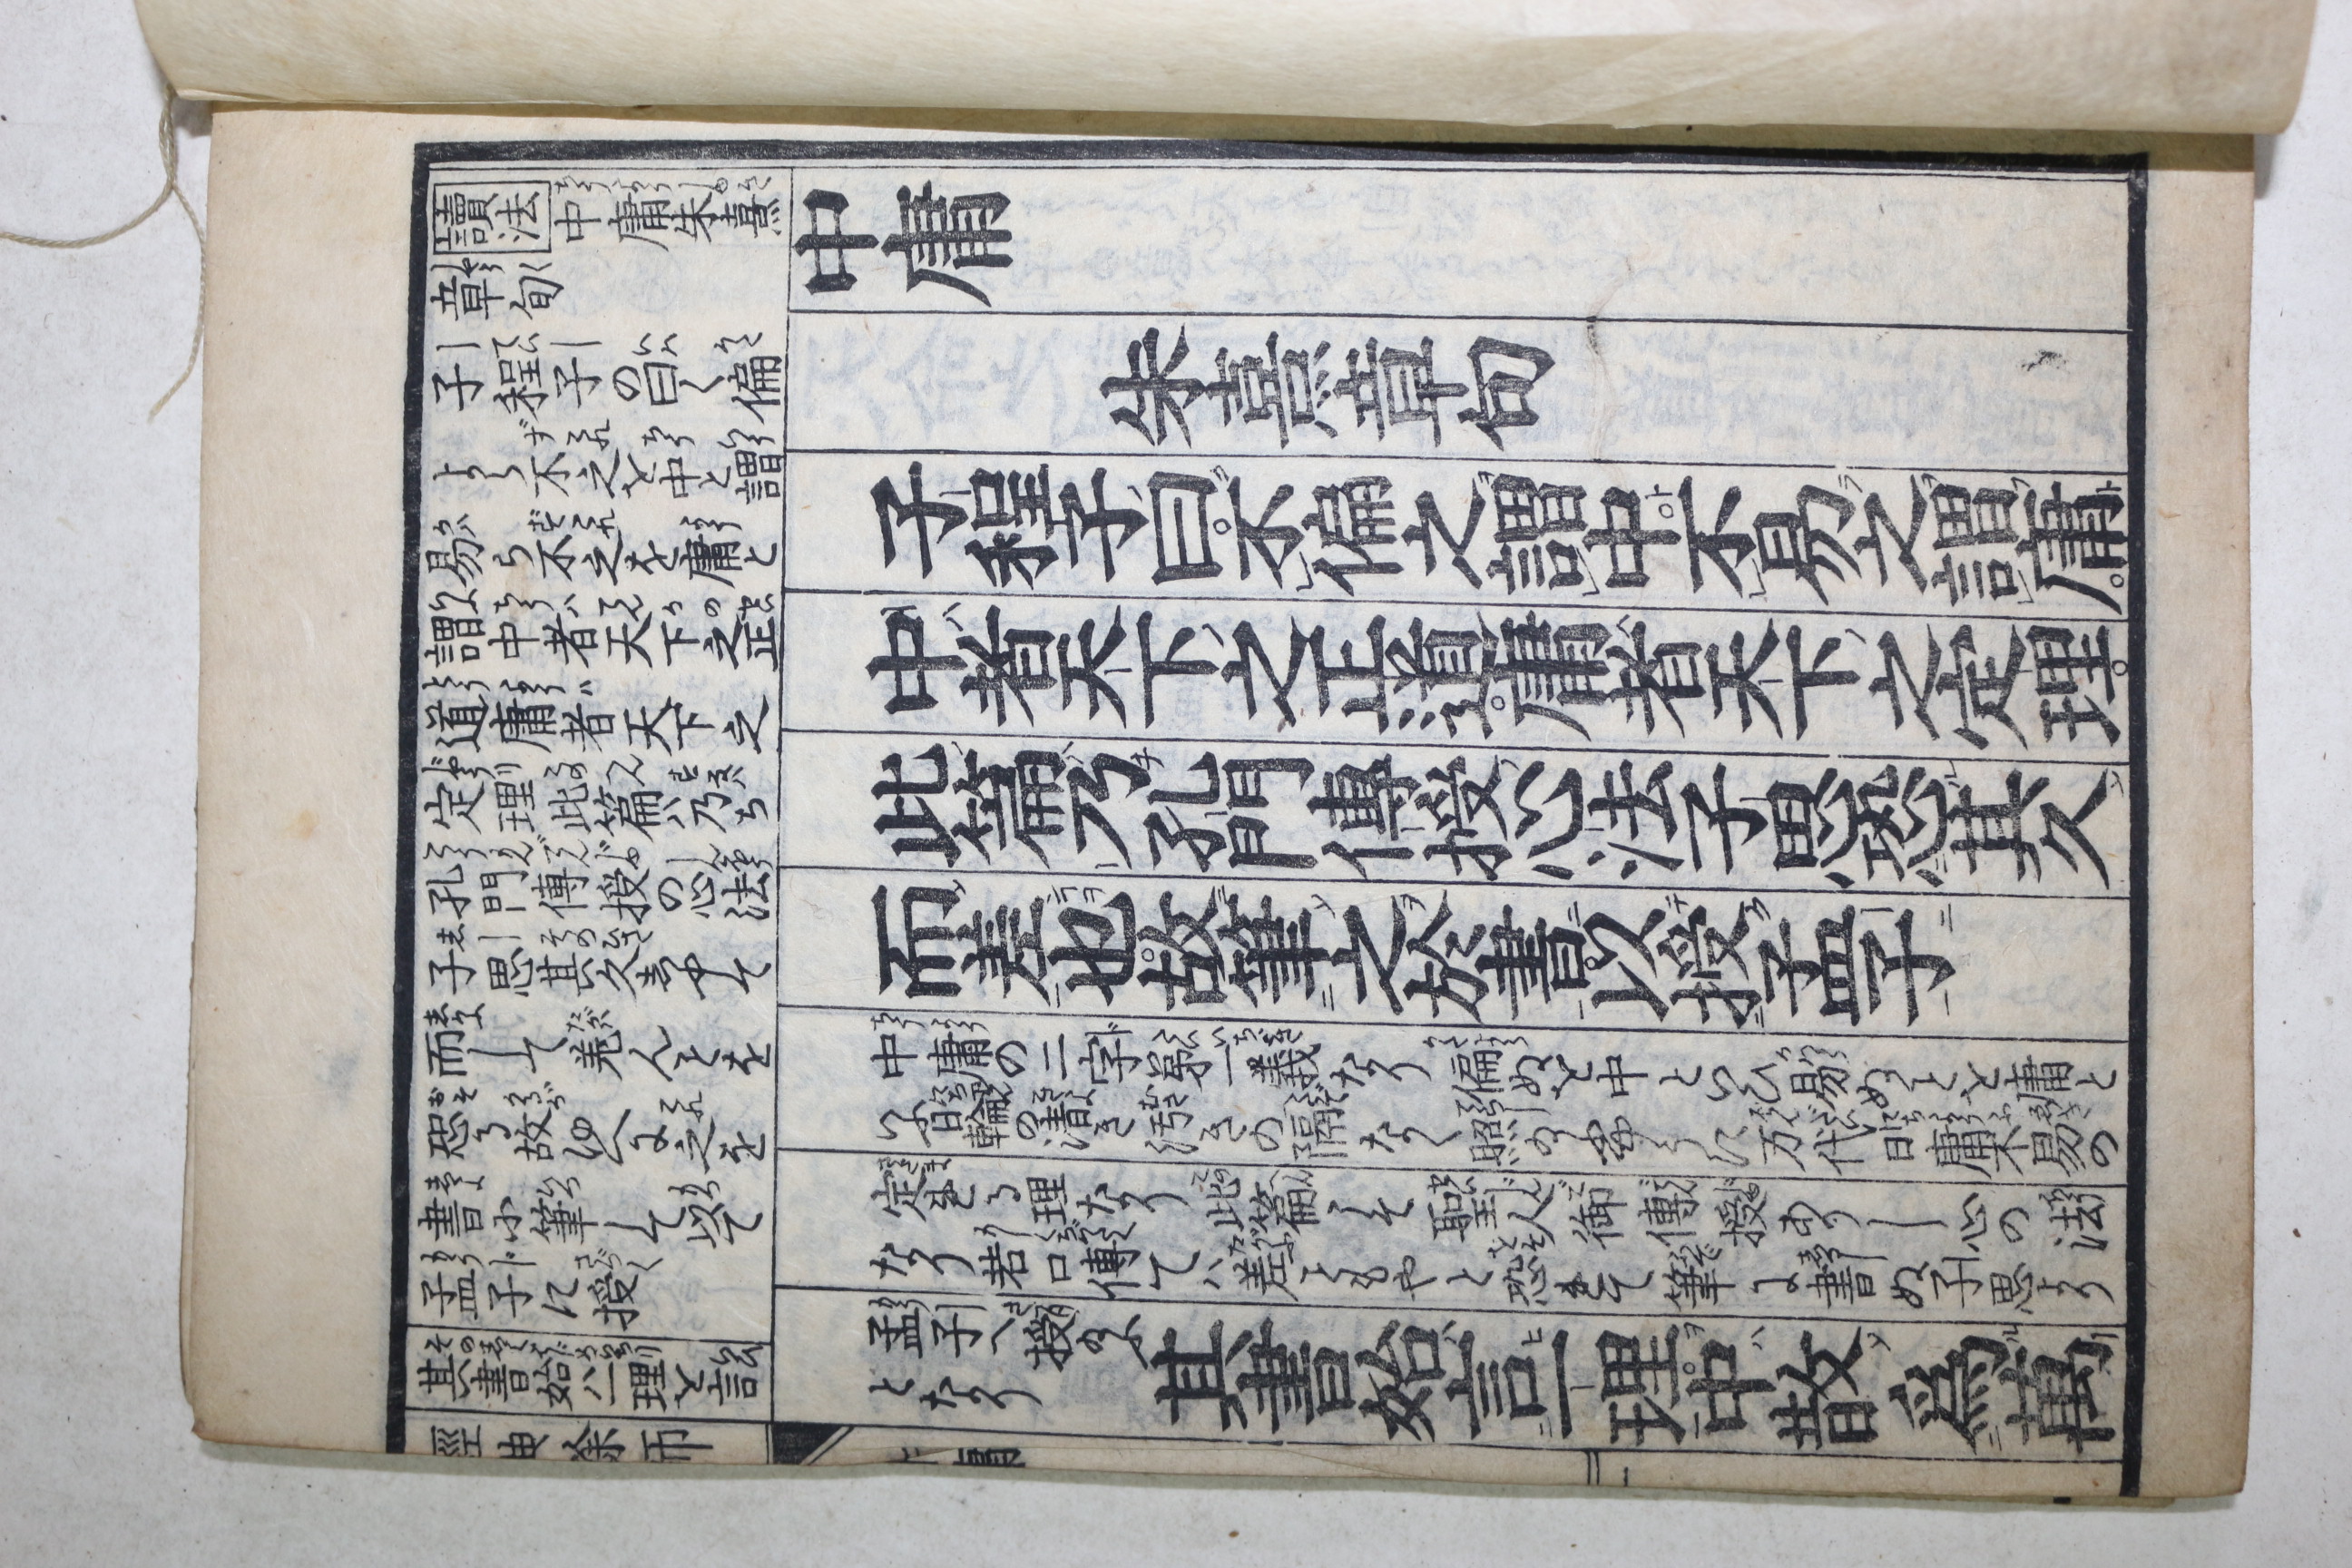 讀法 中庸朱熹
章句
子程子の曰く偏
よら不之を中と謂
易ら不之を庸と
謂中者天下之正
道庸者天下之
定理此篇ハ乃ち
孔門傳授の心法
子思其久ふして
而して差んことを
恐る故ゆへに之を
書に筆して以て
孟子に授
其書始ハ一理を言
中庸
朱熹章句
子程子曰。不偏之謂中。不易之謂庸。
中者天下之正道。庸者天下之定理。
此篇乃孔門傳授心法子思恐其久
而差也。故筆之於書。以授孟子
中庸の二字第一義なり偏ぬを中といひ易ぬことを庸と
いふ日輪の清き汚きの隔なく照のふやうに万代日庸不易の
定れる理なり此篇こそ聖人御傳授ありし心の法
なり若口傳てハ差こともやと恐れて筆に書ぬ子思より
孟子へ授のふ
となり
其書始言一理。中散爲萬
經典余師
一